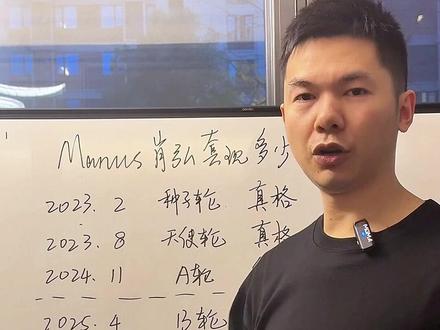 Manus 肖弘套现多少
2023. 2 种子轮 真格
2023. 8 天使轮 真格
2024. 11 A轮
2025. 4 B轮